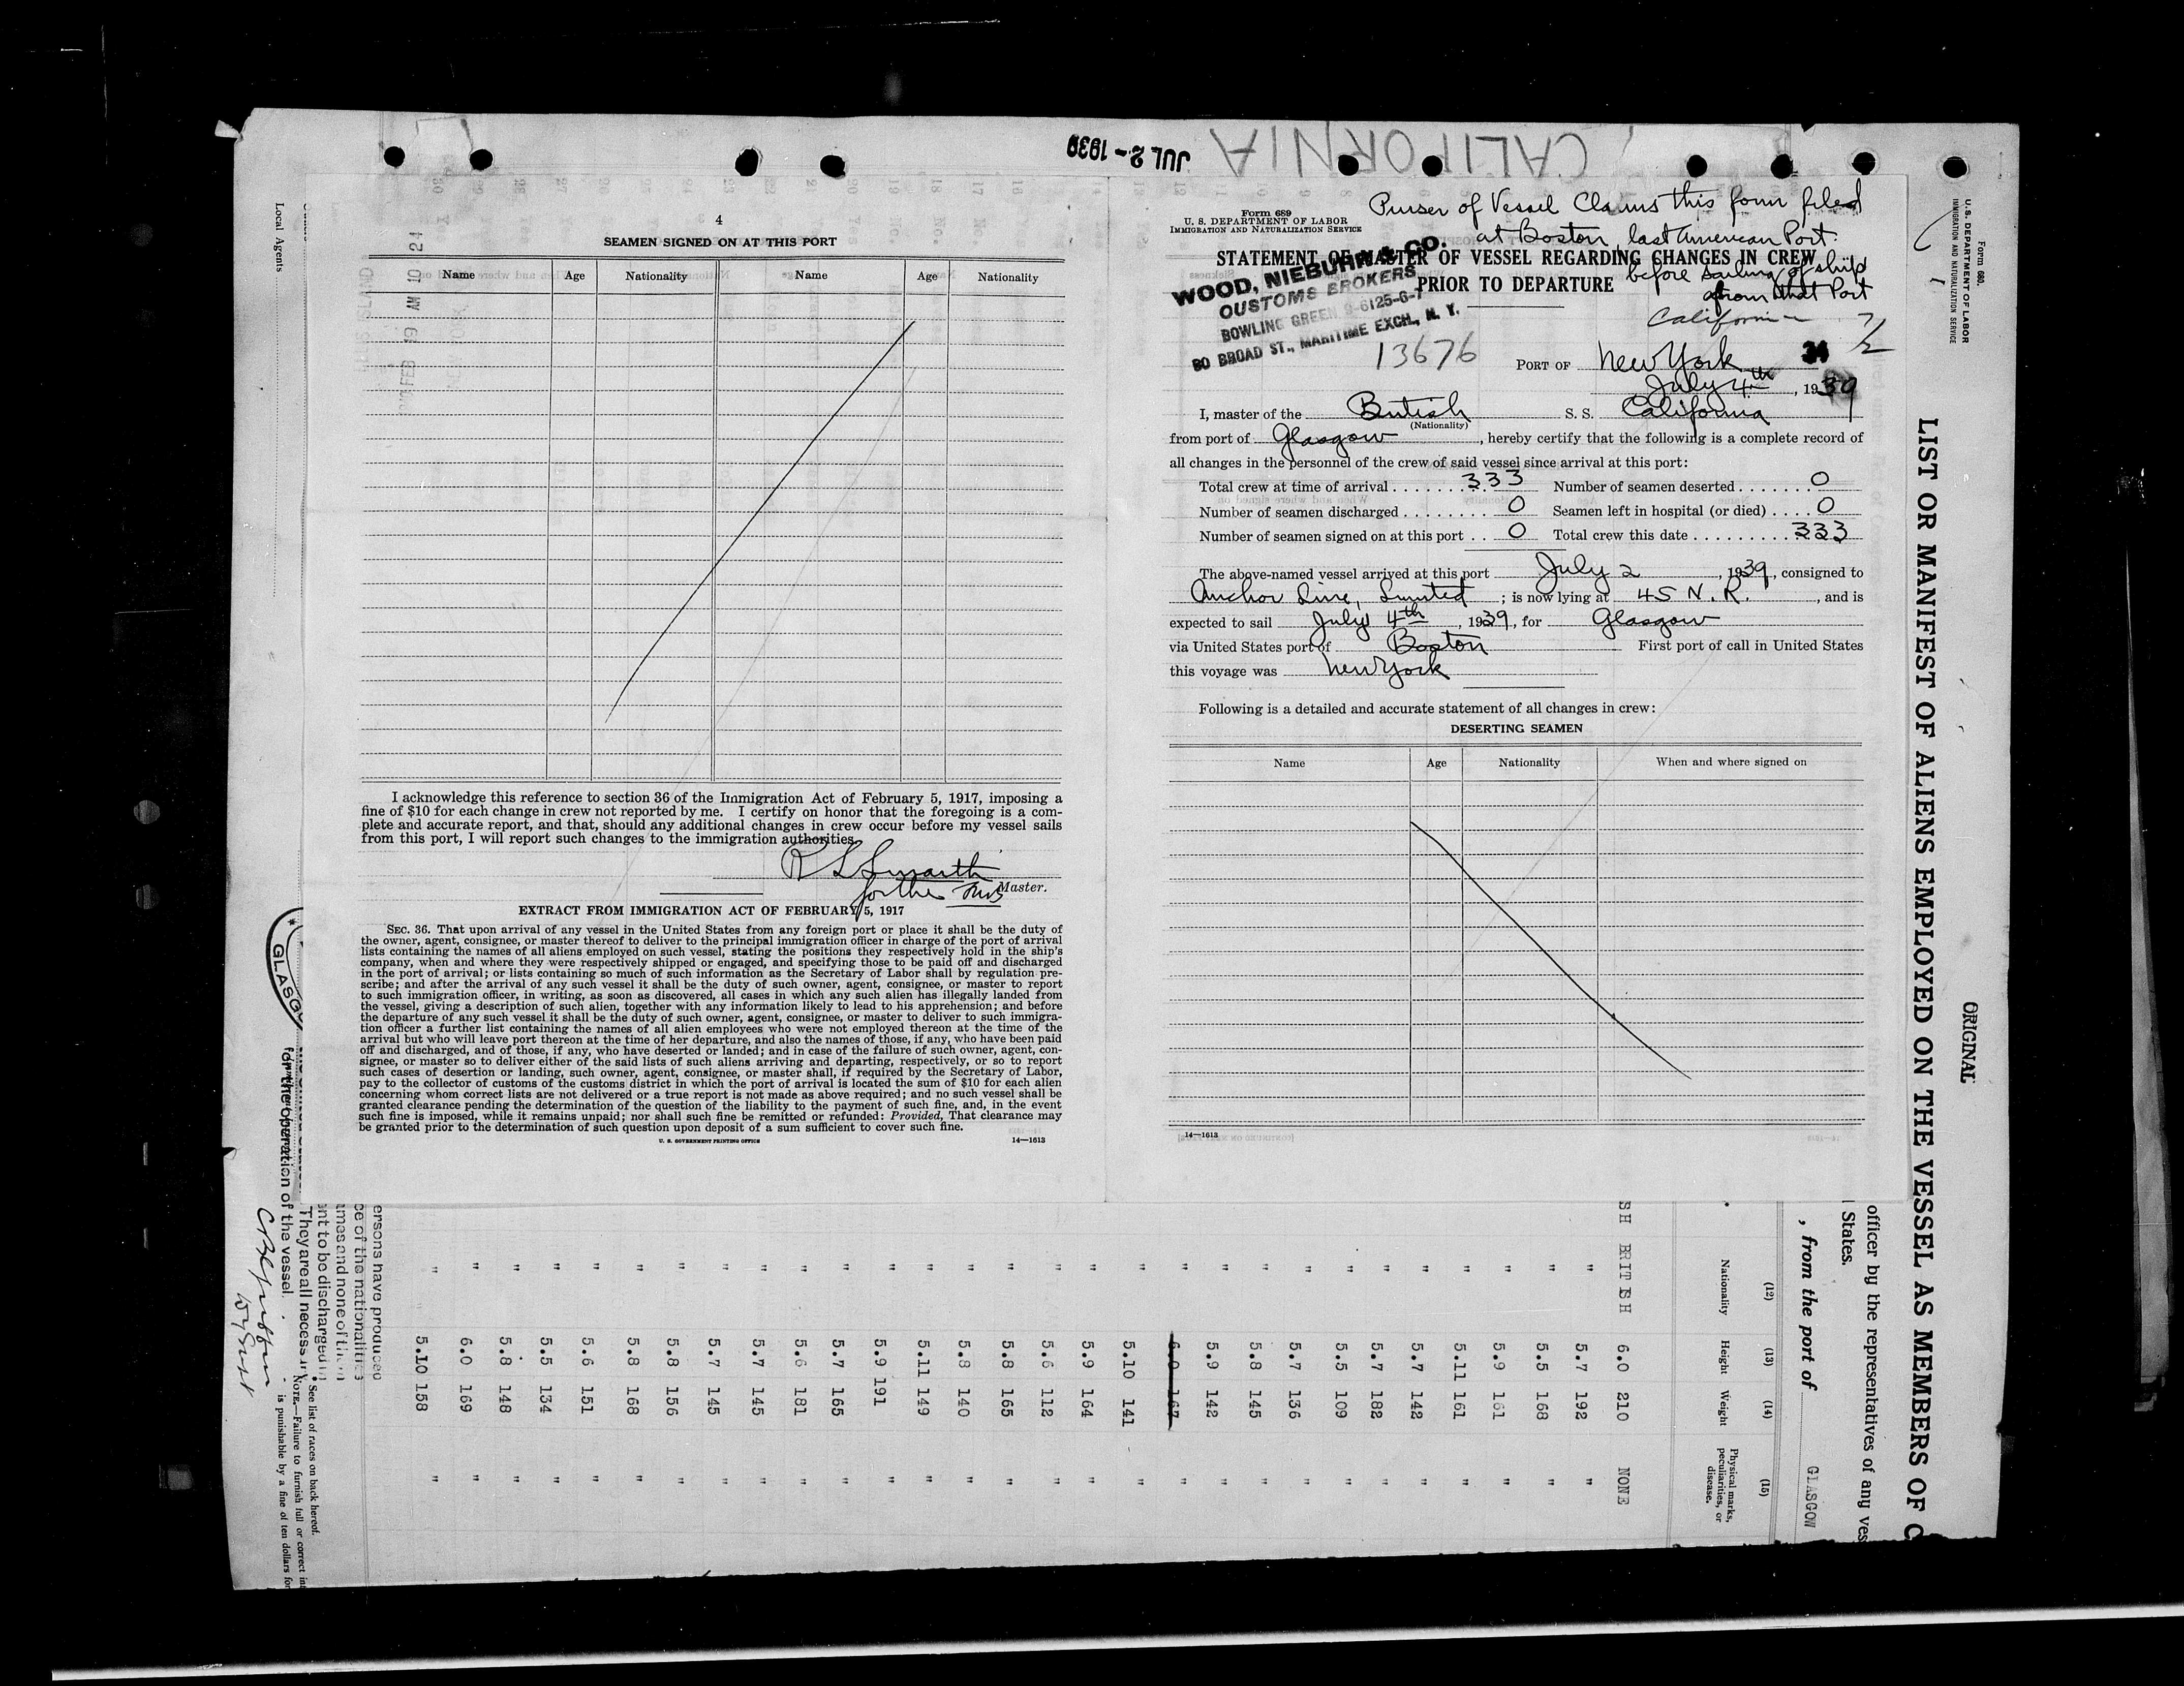 JUL 2 - 1939
CALIFORNIA
4
SEAMEN SIGNED ON AT THIS PORT
Name Age Nationality Name Age Nationality
I acknowledge this reference to section 36 of the Immigration Act of February 5, 1917, imposing a
fine of $10 for each change in crew not reported by me. I certify on honor that the foregoing is a com-
plete and accurate report, and that, should any additional changes in crew occur before my vessel sails
from this port, I will report such changes to the immigration authorities.
for the
Master.
EXTRACT FROM IMMIGRATION ACT OF FEBRUARY 5, 1917
SEC. 36. That upon arrival of any vessel in the United States from any foreign port or place it shall be the duty of
the owner, agent, consignee, or master thereof to deliver to the principal immigration officer in charge of the port of arrival
lists containing the names of all aliens employed on such vessel, stating the positions they respectively hold in the ship's
company, when and where they were respectively shipped or engaged, and specifying those to be paid off and discharged
in the port of arrival; or lists containing so much of such information as the Secretary of Labor shall by regulation pre-
scribe; and after the arrival of any such vessel it shall be the duty of such owner, agent, consignee, or master to report
to such immigration officer, in writing, as soon as discovered, all cases in which any such alien has illegally landed from
the vessel, giving a description of such alien, together with any information likely to lead to his apprehension; and before
the departure of any such vessel it shall be the duty of such owner, agent, consignee, or master to deliver to such immigra-
tion officer a further list containing the names of all alien employees who were not employed thereon at the time of the
arrival but who will leave port thereon at the time of her departure, and also the names of those, if any, who have been paid
off and discharged, and of those, if any, who have deserted or landed; and in case of the failure of such owner, agent, con-
signee, or master so to deliver either of the said lists of such aliens arriving and departing, respectively, or so to report
such cases of desertion or landing, such owner, agent, consignee, or master shall, if required by the Secretary of Labor,
pay to the collector of customs of the customs district in which the port of arrival is located the sum of $10 for each alien
concerning whom correct lists are not delivered or a true report is not made as above required; and no such vessel shall be
granted clearance pending the determination of the question of the liability to the payment of such fine, and, in the event
such fine is imposed, while it remains unpaid; nor shall such fine be remitted or refunded: Provided, That clearance may
be granted prior to the determination of such question upon deposit of a sum sufficient to cover such fine.
U. S. GOVERNMENT PRINTING OFFICE 14—1613
Purser of Vessel Claims this form filed
at Boston, last American Port
before sailing of ship
from that Port
California
Form 689
U. S. DEPARTMENT OF LABOR
IMMIGRATION AND NATURALIZATION SERVICE
STATEMENT OF MASTER OF VESSEL REGARDING CHANGES IN CREW
PRIOR TO DEPARTURE
WOOD, NIEBUHR & CO.
CUSTOMS BROKERS
BOWLING GREEN 9-6125-6-7
80 BROAD ST., MARITIME EXCH., N. Y.
13676
PORT OF New York
July 4th, 1939
I, master of the British S. S. California
(Nationality)
from port of Glasgow, hereby certify that the following is a complete record of
all changes in the personnel of the crew of said vessel since arrival at this port:
Total crew at time of arrival 333 Number of seamen deserted 0
Number of seamen discharged 0 Seamen left in hospital (or died) 0
Number of seamen signed on at this port 0 Total crew this date 333
The above-named vessel arrived at this port July 2, 1939, consigned to
Anchor Line, Limited; is now lying at 45 N. R., and is
expected to sail July 4th, 1939, for Glasgow
via United States port of Boston First port of call in United States
this voyage was New York
Following is a detailed and accurate statement of all changes in crew:
DESERTING SEAMEN
Name Age Nationality When and where signed on
14—1613
Form 680.
U. S. DEPARTMENT OF LABOR
IMMIGRATION AND NATURALIZATION SERVICE
ORIGINAL
LIST OR MANIFEST OF ALIENS EMPLOYED ON THE VESSEL AS MEMBERS OF C
officer by the representatives of any ves
States.
, from the port of GLASGOW
(12) (13) (14) (15)
Nationality Height Weight Physical marks, peculiarities, or disease.
SH BRITISH 6.0 210 NONE
" 5.7 192 "
" 5.5 168 "
" 5.9 161 "
" 5.11 161 "
" 5.7 142 "
" 5.7 182 "
" 5.5 109 "
" 5.7 136 "
" 5.8 145 "
" 5.9 142 "
" 6.0 167 "
" 5.10 141 "
" 5.9 164 "
" 5.6 112 "
" 5.8 165 "
" 5.8 140 "
" 5.11 149 "
" 5.9 191 "
" 5.7 165 "
" 5.6 181 "
" 5.7 145 "
" 5.7 145 "
" 5.8 156 "
" 5.8 168 "
" 5.6 151 "
" 5.5 134 "
" 5.8 148 "
" 6.0 169 "
" 5.10 158 "
ersons have produced
ce of the nationalities
ames and none of them
nt to be discharged in
They are all necessary
for the operation of the vessel.
* See list of races on back hereof.
NOTE.—Failure to furnish full or correct in
is punishable by a fine of ten dollars for
Local Agents
GLASGOW
FEB 19 AM 10 24